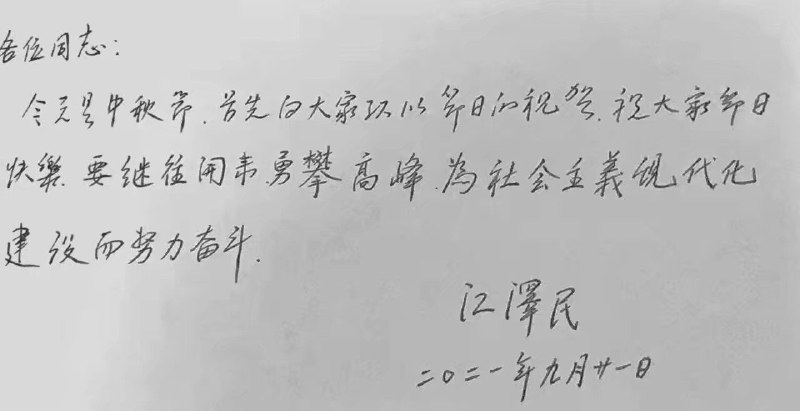 各位同志：
今天是中秋节.首先向大家致以节日的祝贺.祝大家节日
快樂.要继往開来勇攀高峰.為社会主義现代化
建设而努力奋斗.
江澤民
二〇二一年九月廿一日